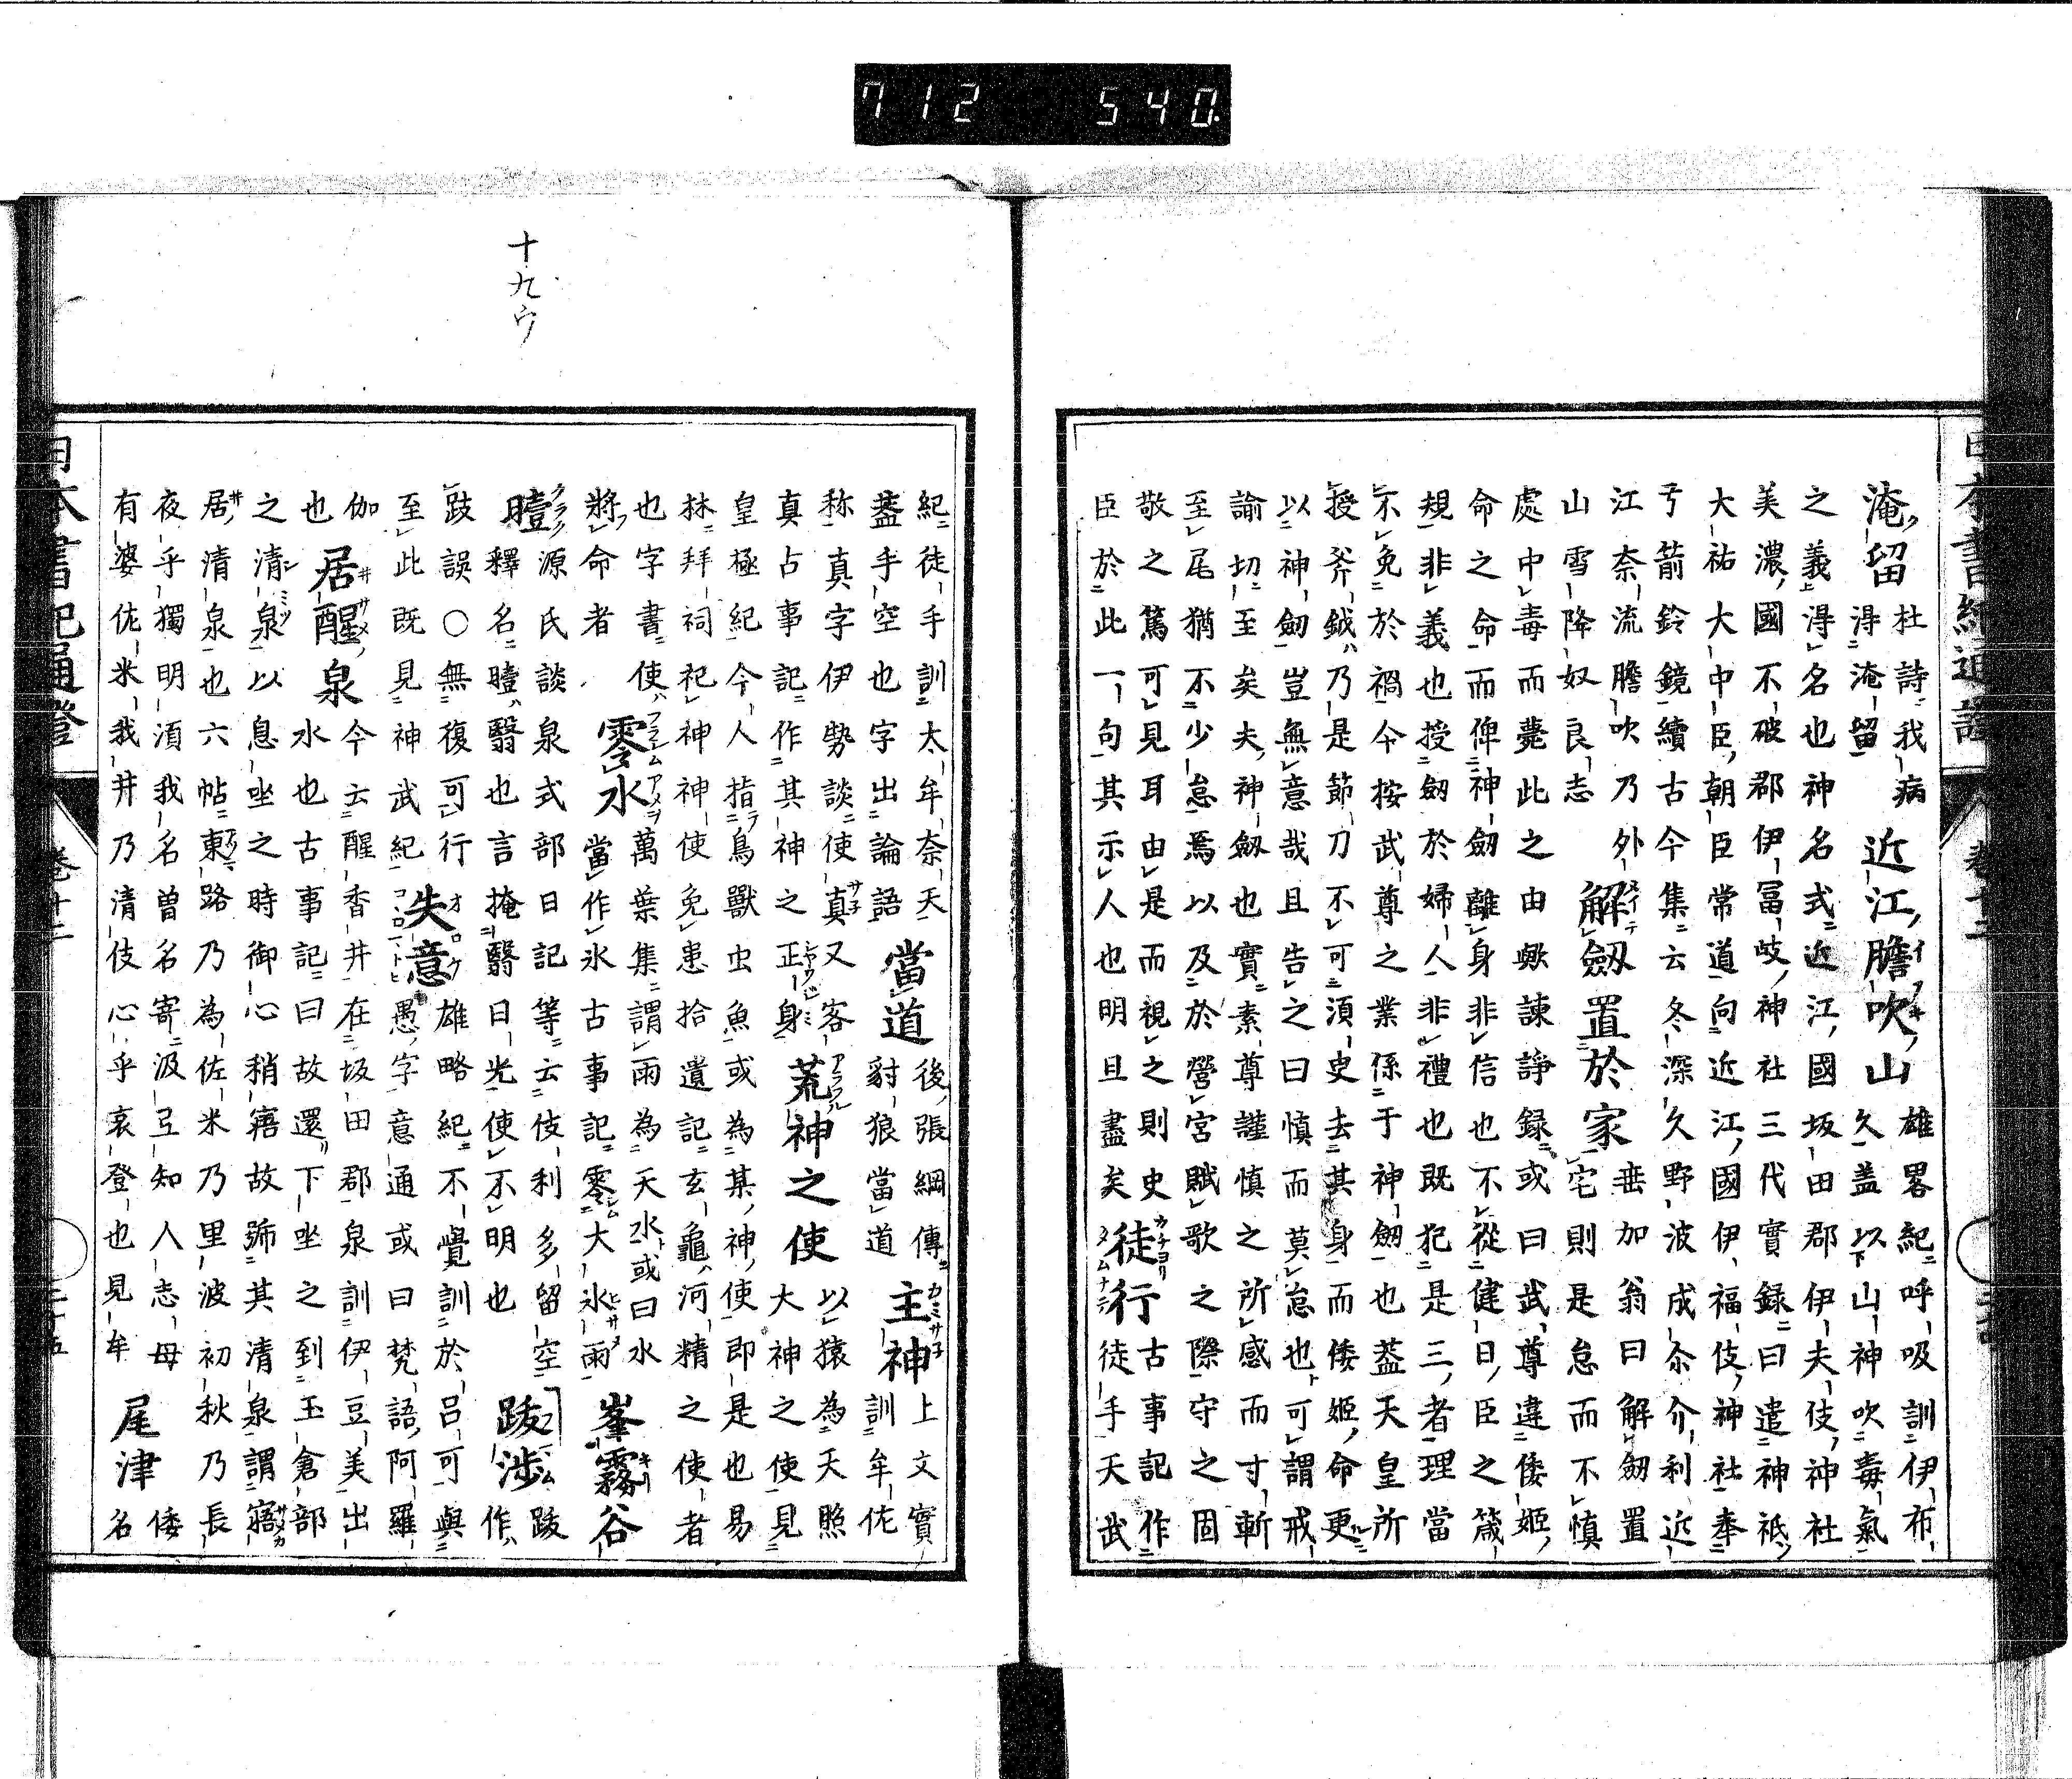 712 540
淹留
杜詩我病
得淹留
近江膽吹山
雄畧紀呼吸訓伊布
久蓋以山神吹毒氣
之義得名也神名式近江國坂田郡伊夫伎神社
美濃國不破郡伊冨岐神社三代實録曰遣神祇
大祐大中臣朝臣常道向近江國伊福伎神社奉
亏箭鈴鏡續古今集云冬深久野波成尓介利近
江奈流膽吹乃外
山雪降奴良志
解劔置於家
垂加翁曰解劔置
宅則是怠而不慎
處中毒而薨此之由歟諌諍録或曰武尊違倭姬
命之命而俾神劔離身非信也不從健日臣之箴
規非義也授劔於婦人非禮也既犯是三者理當
不免於禍今按武尊之業係于神劔也葢天皇所
授斧鉞乃是節刀不可須臾去其身而倭姬命更
以神劔豈無意哉且告之曰慎而莫怠也可謂戒
諭切至矣夫神劔也實素尊謹慎之所感而寸斬
至尾猶不少怠焉以及於營宮賦歌之際守之固
敬之篤可見耳由是而視之則史
臣於此一句其示人也明且盡矣
徒行
古事記作
徒手天武
十九ウ
紀徒手訓太牟奈天
葢手空也字出論語
當道
後張綱傳
豺狼當道
主神
上文實
訓牟佐
称真字伊勢談使真又客
真占事記作其神之正身
荒神之使
以猿為天照
大神之使見
皇極紀今人指鳥獸虫魚或為某神使即是也易
林拜祠祀神神使免患拾遺記玄龜河精之使者
也字書使
將命者
零氷
萬葉集謂雨為天水或曰水
當作氷古事記零大氷雨
峯霧谷
曀
源氏談泉式部日記等云伎利多留空
釋名曀翳也言掩翳日光使不明也
跋渉
跋
作
跂誤○無復可行
至此既見神武紀
失意
雄略紀不覺訓於呂可與
愚字意通或曰梵語阿羅
伽
也
居醒泉
今云醒香井在坂田郡泉訓伊豆美出
水也古事記曰故還下坐之到玉倉部
之清泉以息坐之時御心稍寤故號其清泉謂寤
居清泉也六帖東路乃為佐米乃里波初秋乃長
夜乎獨明湏我名曽名寄汲弖知人志母
有婆佐米我井乃清伎心乎哀登也見牟
尾津
倭
名
日本書紀通證
卷十二
三十五